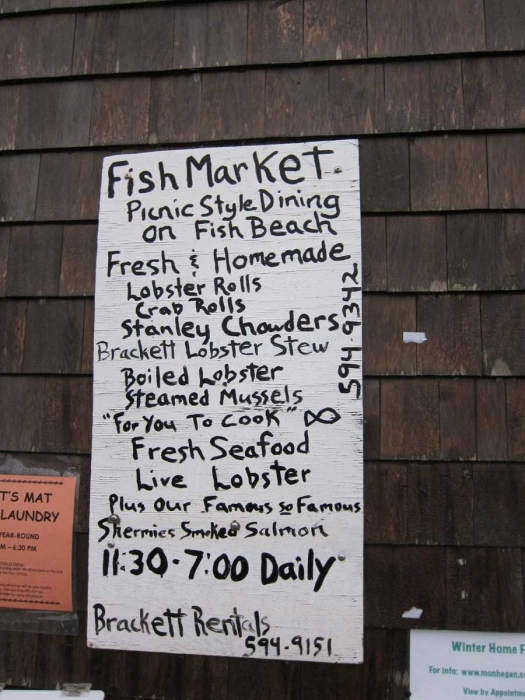 Fish Market.
Picnic Style Dining
on Fish Beach
Fresh & Homemade
Lobster Rolls
Crab Rolls
Stanley Chowders
Brackett Lobster Stew
Boiled Lobster
Steamed Mussels
"For You To Cook"
Fresh Seafood
Live Lobster
Plus Our Famous so Famous
Shermies Smoked Salmon
11:30-7:00 Daily
Brackett Rentals
594-9151
594-9342
T'S MAT
LAUNDRY
YEAR-ROUND
M - 6:30 PM
Winter Home F
For Info: www.monhegan.
View by Appointm